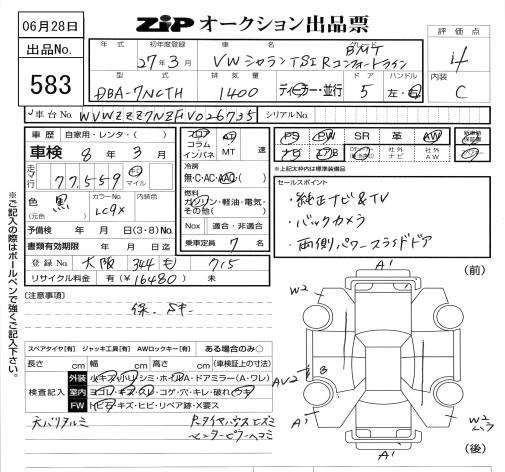 06月28日
ZIP オークション出品票
出品No.
583
年式 初年度登録 車名 グレード 評価点
27年3月 VWシャラン TSI BMT コンフォートライン 4
型式 排気量 ドア ハンドル 内装
DBA-7NCTH 1400 ディーラー・並行 5 左・右 C
車台No. WVWZZZ7NZFV026735 シリアルNo.
車歴 自家用・レンタ・( )
車検 8年3月
走行 77,559 キロ マイル
色 黒 (元色) カラーNo. LC9X
予備検 年 月 日(3・8)No.
書類有効期限 年 月 日迄
登録No. 大阪 344 も 715
リサイクル料金 有(¥16480) 未
フロア AT
コラム MT 速
インパネ
冷房
無・C・AC・AAC( )
燃料
ガソリン・軽油・電気・その他( )
Nox 適合・非適合
乗車定員 7 名
PS PW SR 革 AW
ナビ エアB 社外ナビ 社外AW
*上記太枠内は標準装備品
セールスポイント
・純正ナビ&TV
・バックカメラ
・両側パワースライドドア
[注意事項]
保.
スペアタイヤ[有] ジャッキ工具[有] AWロックキー[有] ある場合のみ○
長さ cm 幅 cm 高さ cm (車検証上の寸法)
検査記入
外装 小キズ・小凹・シミ・ホイルA・ドアミラー(A・ワレ)
室内 ヨゴレ・キズ・スレ・コゲ・穴・キレ・破れ・ウキ
FW トビ石・キズ・ヒビ・リペア跡・X要ス
天バリタルミ
Rタイヤハウスヒズミ
センターピラーヘコミ
※ご記入の際はボールペンで強くご記入下さい。
A1
(前)
W2
A1
B
AV2
A1
W2
(後)
A1